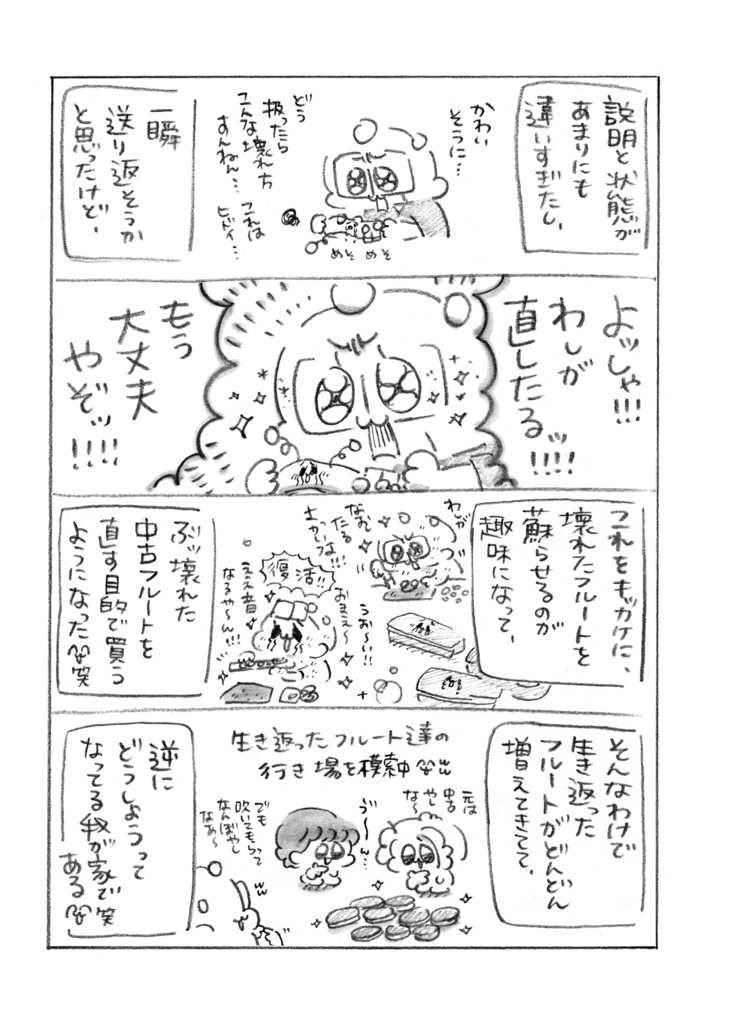 説明と状態が
あまりにも
違いすぎたし、
かわい
そうに…
どう
扱ったら
こんな壊れ方
すんねん…
これは
ヒドイ…
めそ めそ
一瞬
送り返そうか
と思ったけど、
よッしゃ!!!
わしが
直したるッ!!!!
もう
大丈夫
やぞッ!!!!
これをキッカケに、
壊れたフルートを
蘇らせるのが
趣味になって、
わしが
なおし
たる
さかいな!!
おまえ〜
うお〜い!!
復活!!
ええ音
なるや〜ん!!!
ぶッ壊れた
中古フルートを
直す目的で買う
ようになった笑
そんなわけで
生き返った
フルートがどんどん
増えてきてて、
生き返ったフルート達の
行き場を模索中
元は
中古
やし
な〜
ゔ〜ん…
でも
吹いてもらって
なんぼやし
なぁ〜
逆に
どうしようって
なってる我が家で笑
ある